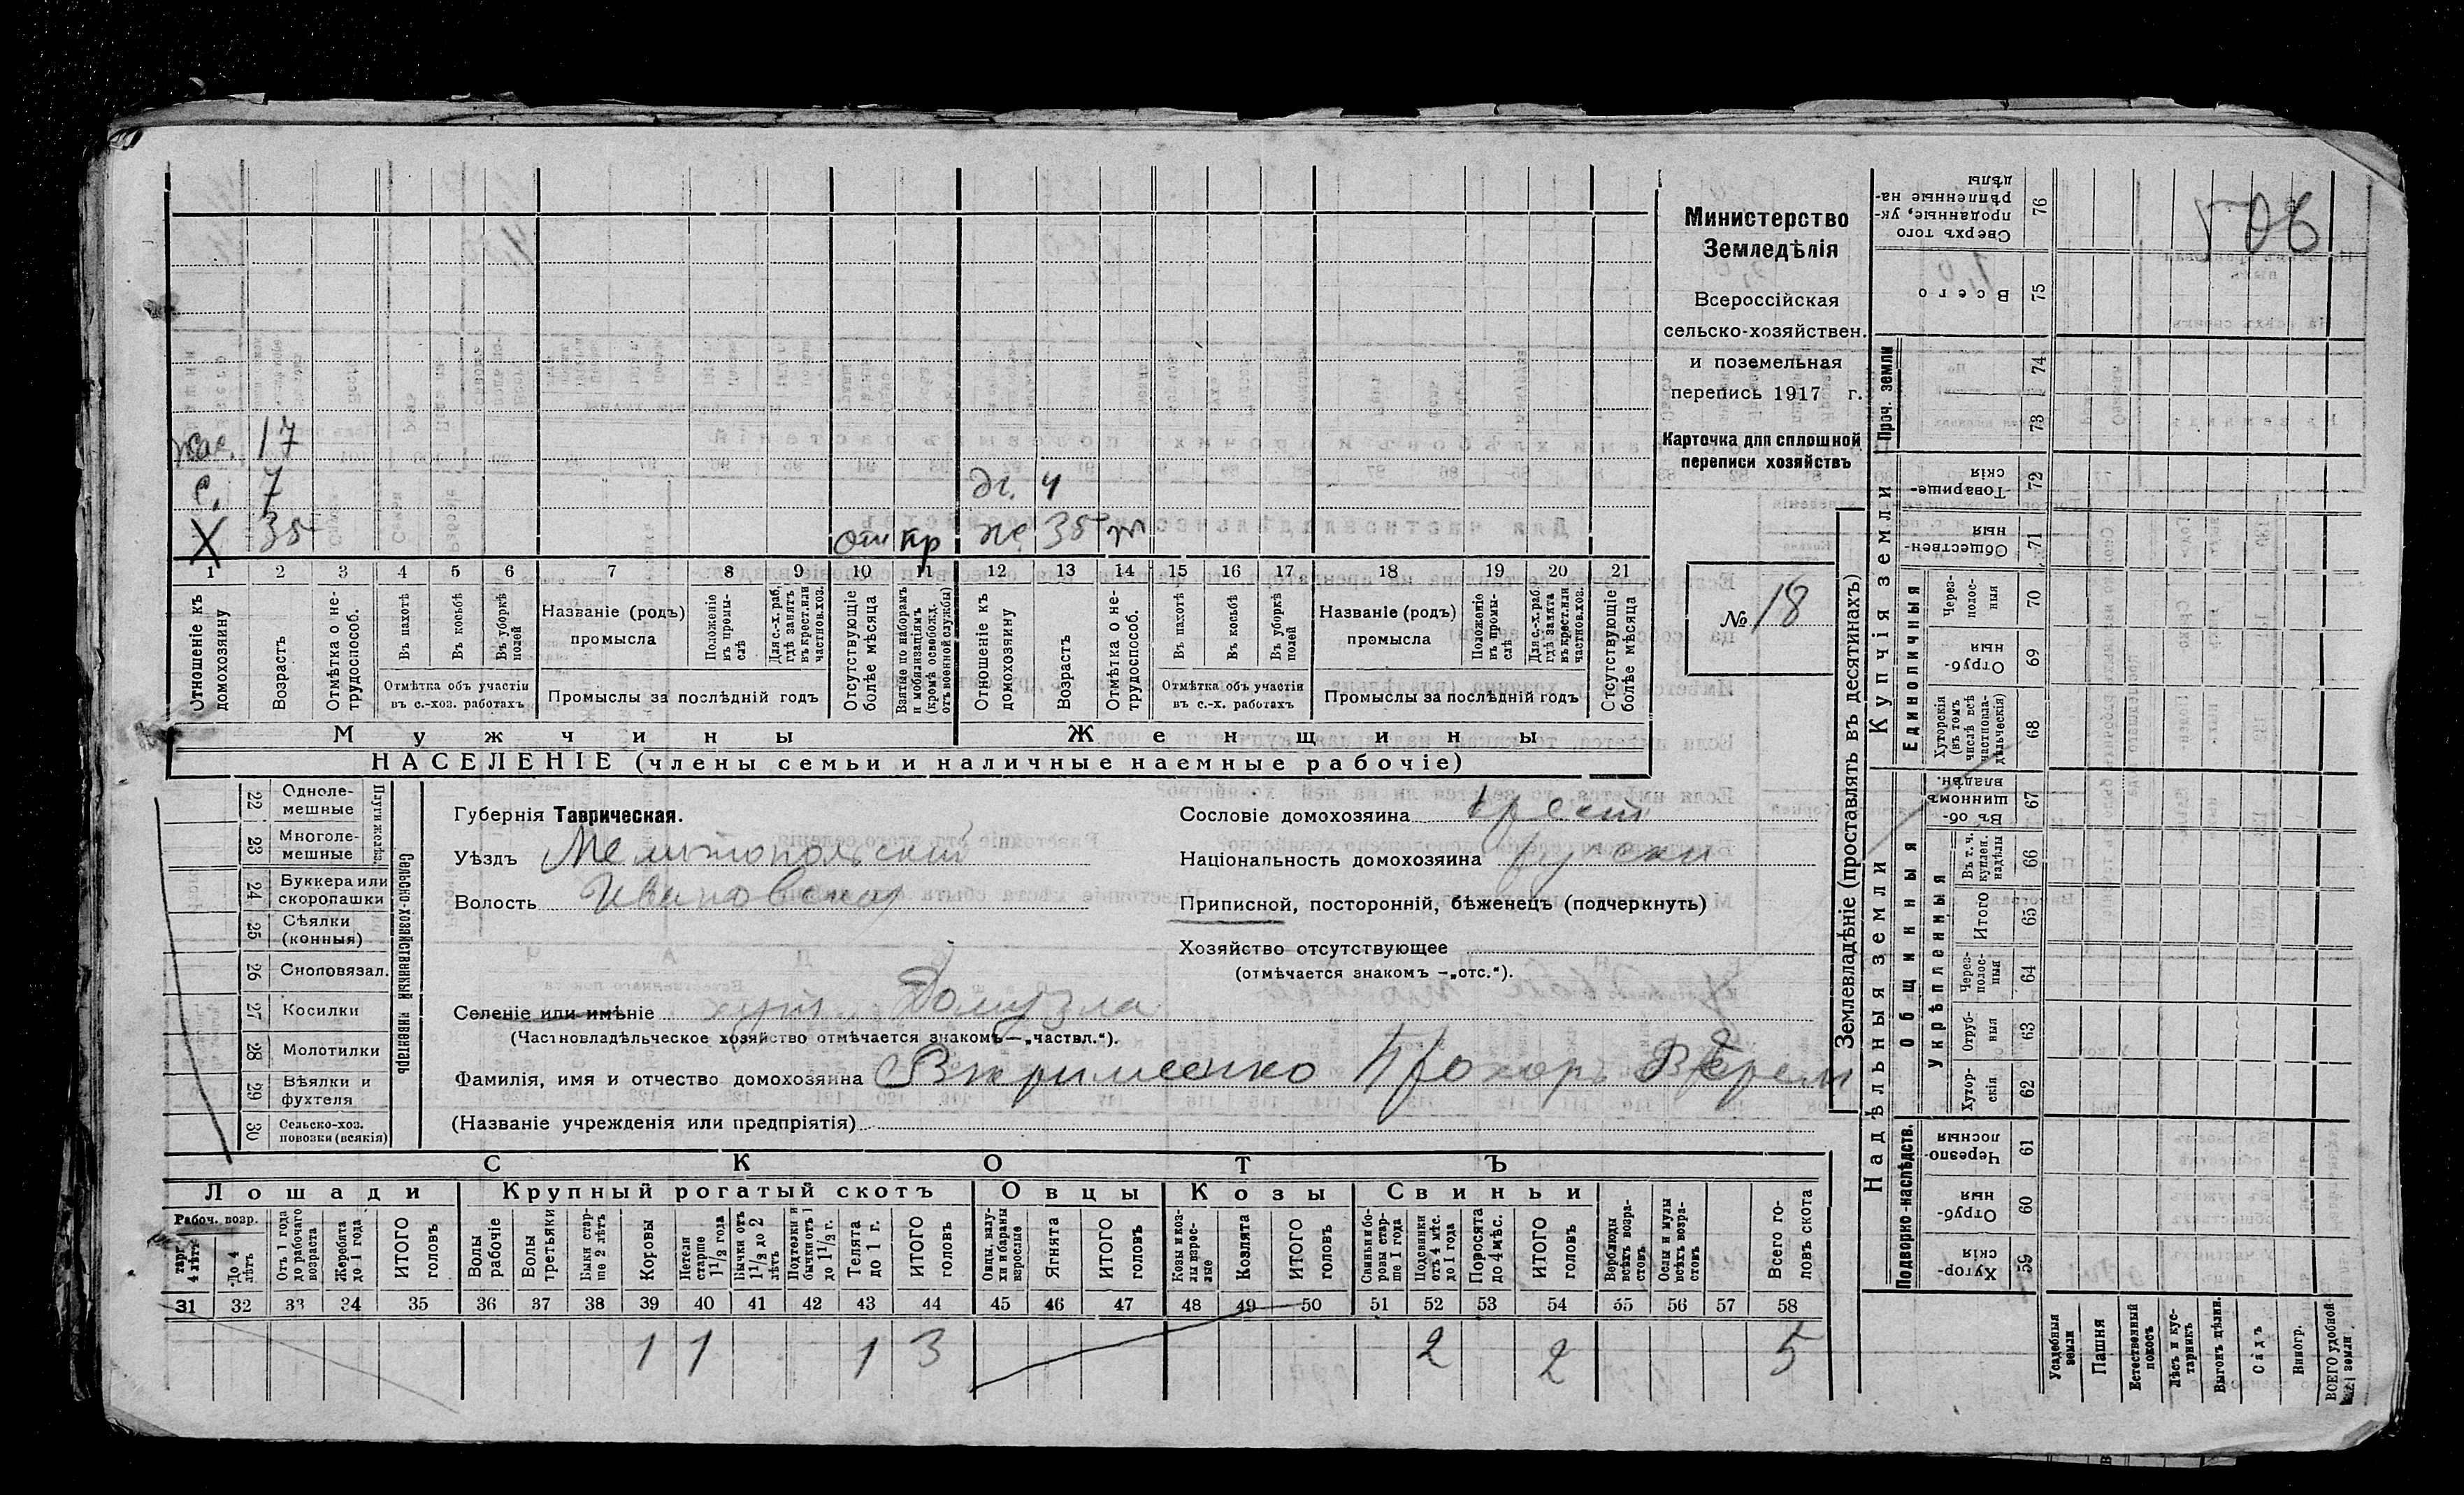 Министерство
Земледѣлія
Всероссійская
сельско-хозяйствен.
и поземельная
перепись 1917 г.
Карточка для сплошной
переписи хозяйствъ
№ 18
17
с. 7
X 35
дч. 4
ж 35
1 2 3 4 5 6 7 8 9 10 11 12 13 14 15 16 17 18 19 20 21
Отношеніе къ домохозяину
Возрастъ
Отмѣтка о нетрудоспособ.
Въ пахотѣ
Въ косьбѣ
Въ уборкѣ полей
Отмѣтка объ участіи въ с.-хоз. работахъ
Названіе (родъ) промысла
Положеніе въ промыслѣ
Для с.-х. раб. гдѣ занятъ въ крест. или частнов. хоз.
Промыслы за послѣдній годъ
Отсутствующіе болѣе мѣсяца
Взятые по наборамъ и мобилизаціямъ (кромѣ освобожд. отъ военной службы)
Отношеніе къ домохозяину
Возрастъ
Отмѣтка о нетрудоспособ.
Въ пахотѣ
Въ косьбѣ
Въ уборкѣ полей
Отмѣтка объ участіи въ с.-х. работахъ
Названіе (родъ) промысла
Положеніе въ промыслѣ
Для с.-х. раб. гдѣ занята въ крест. или частнов. хоз.
Промыслы за послѣдній годъ
Отсутствующіе болѣе мѣсяца
Мужчины Женщины
НАСЕЛЕНІЕ (члены семьи и наличные наемные рабочіе)
Сельско-хозяйственный инвентарь
Плуги желѣз.
22 Однолемешные
23 Многолемешные
24 Буккера или скоропашки
25 Сѣялки (конныя)
26 Сноповязал.
27 Косилки
28 Молотилки
29 Вѣялки и фухтеля
30 Сельско-хоз. повозки (всякія)
Губернія Таврическая.
Уѣздъ Мелитопольскій
Волость Ивановская
Сословіе домохозяина крест
Національность домохозяина русск
Приписной, посторонній, бѣженецъ (подчеркнуть)
Хозяйство отсутствующее
(отмѣчается знакомъ —„отс.“).
Селеніе или имѣніе хут. Домузла
(Частновладѣльческое хозяйство отмѣчается знакомъ—„частвл.“).
Фамилія, имя и отчество домохозяина Прохоръ
(Названіе учрежденія или предпріятія)
СКОТЪ
Лошади Крупный рогатый скотъ Овцы Козы Свиньи
Рабоч. возр.
До 4 лѣтъ
Отъ 1 года до рабочаго возраста
Жеребята до 1 года
ИТОГО головъ
Волы рабочіе
Волы третьяки
Быки старше 2 лѣтъ
Коровы
Нетели старше 1½ года
Бычки отъ 1½ до 2 лѣтъ
Подтелки и бычки отъ 1 до 1½ г.
Телята до 1 г.
ИТОГО головъ
Овцы, валухи и бараны взрослые
Ягнята
ИТОГО головъ
Козы и козлы взрослые
Козлята
ИТОГО головъ
Свиньи и боровы старше 1 года
Подсвинки отъ 4 мѣс. до 1 года
Поросята до 4 мѣс.
ИТОГО головъ
Верблюды всѣхъ возрастовъ
Ослы и мулы всѣхъ возрастовъ
Всего головъ скота
31 32 33 34 35 36 37 38 39 40 41 42 43 44 45 46 47 48 49 50 51 52 53 54 55 56 57 58
1 1 1 3 2 2 5
Землевладѣніе (проставлять въ десятинахъ)
Надѣльныя земли
Купчія земли
Проч. земли
Подворно-наслѣдств.
Общинныя
Укрѣпленныя
Единоличныя
Хуторскія 59
Отрубныя 60
Черезполосныя 61
Хуторскія 62
Отрубныя 63
Черезполосныя 64
Итого 65
Въ т. ч. куплен. надѣлы 66
Въ общинномъ владѣн. 67
Хуторскія (въ томъ числѣ всѣ частновладѣльческія) 68
Отрубныя 69
Черезполосныя 70
Общественныя 71
Товарищескія 72
73
74
Всего 75
Сверхъ того проданные, укрѣпленные надѣлы 76
Усадебныя земли
Пашня
Естественный покосъ
Лѣсъ и кустарникъ
Выгонъ цѣлин.
Садъ
Виногр.
ВСЕГО удобной земли